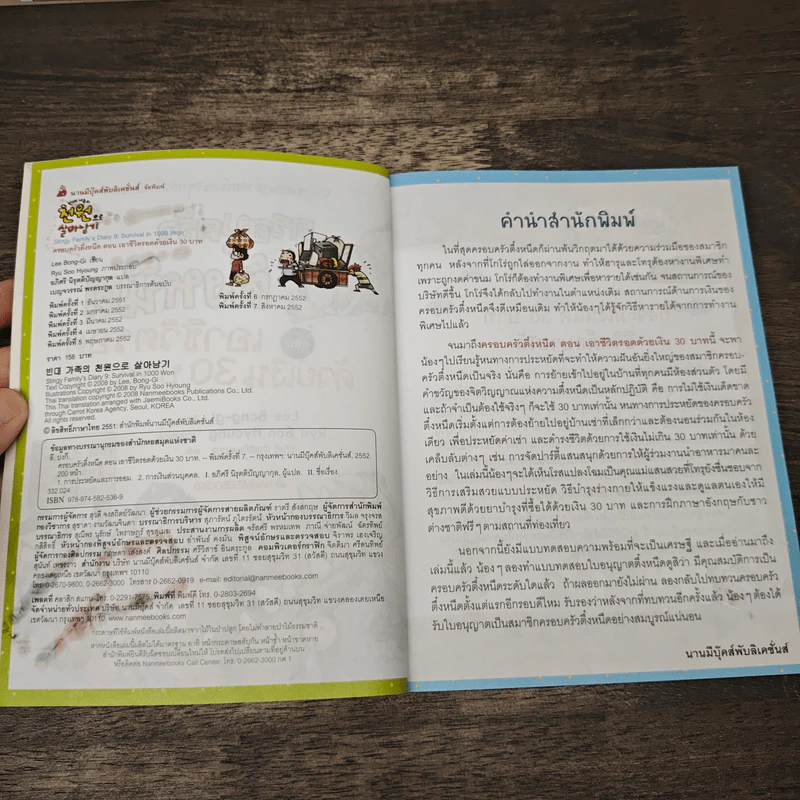 นานมีบุ๊คส์พับลิเคชั่นส์ จัดพิมพ์
천원으로
살아남기
Stingy Family's Diary 9: Survival in 1000 Won
ครอบครัวตึ๋งหนืด ตอน เอาชีวิตรอดด้วยเงิน 30 บาท
Lee Bong-Gi เขียน
Ryu Soo Hyoung ภาพประกอบ
อภิศรี นิรุตติปัญญากุล แปล
เบญจวรรณ พรตระกูล บรรณาธิการต้นฉบับ
พิมพ์ครั้งที่ 1 ธันวาคม 2551
พิมพ์ครั้งที่ 2 มกราคม 2552
พิมพ์ครั้งที่ 3 มีนาคม 2552
พิมพ์ครั้งที่ 4 เมษายน 2552
พิมพ์ครั้งที่ 5 พฤษภาคม 2552
พิมพ์ครั้งที่ 6 กรกฎาคม 2552
พิมพ์ครั้งที่ 7 สิงหาคม 2552
ราคา 158 บาท
빈대 가족의 천원으로 살아남기
Stingy Family's Diary 9: Survival in 1000 Won
Text Copyright © 2008 by Lee, Bong-Gi
Illustrations Copyright © 2008 by Ryu Soo Hyoung
Thai translation copyright © 2008 Nanmeebooks Publications Co., Ltd.
This Thai translation arranged with JaemiBooks Co., Ltd.
through Carrot Korea Agency, Seoul, KOREA
All rights reserved.
© ลิขสิทธิ์ภาษาไทย 2551: สำนักพิมพ์นานมีบุ๊คส์พับลิเคชั่นส์
ข้อมูลทางบรรณานุกรมของสำนักหอสมุดแห่งชาติ
ลี, บงกี.
ครอบครัวตึ๋งหนืด ตอน เอาชีวิตรอดด้วยเงิน 30 บาท. – พิมพ์ครั้งที่ 7. – กรุงเทพฯ: นานมีบุ๊คส์พับลิเคชั่นส์, 2552.
200 หน้า.
1. การประหยัดและการออม. 2. การเงินส่วนบุคคล. I. อภิศรี นิรุตติปัญญากุล, ผู้แปล. II. ชื่อเรื่อง.
332.024
ISBN 978-974-582-536-9
โทร. 0-2670-9800, 0-2662-3000 โทรสาร 0-2662-0919 e-mail: editorial@nanmeebooks.com
กระดาษที่ใช้พิมพ์หนังสือเล่มนี้ผลิตมาจากไม้ในป่าปลูก โดยไม่ทำลายป่าไม้ธรรมชาติ
หากหนังสือเล่มนี้ผลิตไม่ได้มาตรฐาน อาทิ หน้ากระดาษสลับกัน หน้าซ้ำ หน้าขาดหาย
สำนักพิมพ์ยินดีรับผิดชอบเปลี่ยนใหม่ให้ โปรดส่งไปเปลี่ยนตามที่อยู่ด้านบน
หรือติดต่อ Nanmeebooks Call Center: โทร. 0-2662-3000 กด 1
คำนำสำนักพิมพ์
ในที่สุดครอบครัวตึ๋งหนืดก็ผ่านพ้นวิกฤตมาได้ด้วยความร่วมมือของสมาชิก
ทุกคน หลังจากที่โกโร่ถูกไล่ออกจากงาน ทำให้ฮารุและโทรุต้องหางานพิเศษทำ
เพราะถูกงดค่าขนม โกโร่ก็ต้องทำงานพิเศษเพื่อหารายได้เช่นกัน จนสถานการณ์ของ
บริษัทดีขึ้น โกโร่จึงได้กลับไปทำงานในตำแหน่งเดิม สถานการณ์ด้านการเงินของ
ครอบครัวตึ๋งหนืดจึงดีเหมือนเดิม ทำให้น้องๆ ได้รู้จักวิธีหารายได้จากการทำงาน
พิเศษไปแล้ว
จนมาถึงครอบครัวตึ๋งหนืด ตอน เอาชีวิตรอดด้วยเงิน 30 บาทนี้ จะพา
น้องๆ ไปเรียนรู้หนทางการประหยัดที่จะทำให้ความฝันอันยิ่งใหญ่ของสมาชิกครอบ-
ครัวตึ๋งหนืดเป็นจริง นั่นคือ การย้ายเข้าไปอยู่ในบ้านที่ทุกคนมีห้องส่วนตัว โดยมี
คำขวัญของจิตวิญญาณแห่งความตึ๋งหนืดเป็นหลักปฏิบัติ คือ การไม่ใช้เงินเด็ดขาด
และถ้าจำเป็นต้องใช้จริงๆ ก็จะใช้ 30 บาทเท่านั้น หนทางการประหยัดของครอบครัว
ตึ๋งหนืดเริ่มตั้งแต่การต้องย้ายไปอยู่บ้านเช่าที่เล็กกว่าและต้องนอนร่วมกันในห้อง
เดียว เพื่อประหยัดค่าเช่า และดำรงชีวิตด้วยการใช้เงินไม่เกิน 30 บาทเท่านั้น ด้วย
เคล็ดลับต่างๆ เช่น การจัดปาร์ตี้แสนสนุกด้วยการให้ผู้ร่วมงานนำอาหารมาคนละ
อย่าง ในเล่มนี้น้องๆ จะได้เห็นโรสแปลงโฉมเป็นคุณแม่แสนสวยที่โทรุยังชื่นชอบจาก
วิธีการเสริมสวยแบบประหยัด วิธีบำรุงร่างกายให้แข็งแรงและดูแลตนเองให้มี
สุขภาพดีด้วยยาบำรุงที่ซื้อได้ด้วยเงิน 30 บาท และการฝึกภาษาอังกฤษกับชาว
ต่างชาติฟรีๆ ตามสถานที่ท่องเที่ยว
นอกจากนี้ยังมีแบบทดสอบความพร้อมที่จะเป็นเศรษฐี และเมื่ออ่านมาถึง
เล่มนี้แล้ว น้องๆ ลองทำแบบทดสอบใบอนุญาตตึ๋งหนืดดูสิว่า มีคุณสมบัติการเป็น
ครอบครัวตึ๋งหนืดระดับใดแล้ว ถ้าผลออกมายังไม่ผ่าน ลองกลับไปทบทวนครอบครัว
ตึ๋งหนืดตั้งแต่แรกอีกรอบดีไหม รับรองว่าหลังจากที่ทบทวนอีกครั้งแล้ว น้องๆ ต้องได้
รับใบอนุญาตเป็นสมาชิกครอบครัวตึ๋งหนืดอย่างสมบูรณ์แน่นอน
นานมีบุ๊คส์พับลิเคชั่นส์